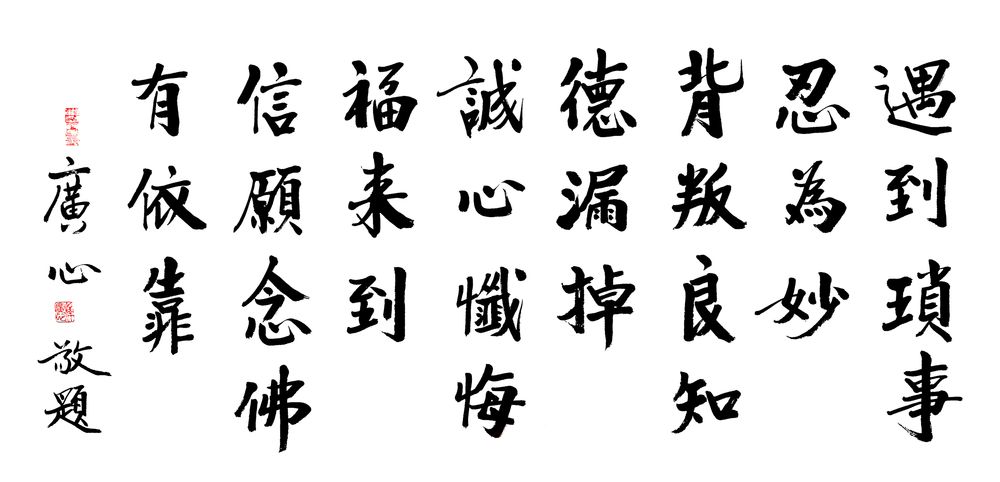 遇到瑣事
忍為妙
背叛良知
德漏掉
誠心懺悔
福来到
信願念佛
有依靠
廣心敬題